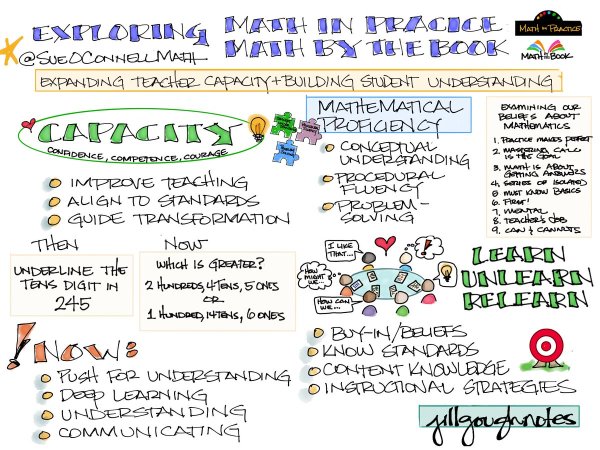 EXPLORING MATH IN PRACICE
MATH BY THE BOOK
@SUEOCONNELLMATH
MATH IN PRACTICE
MATH BY THE BOOK
EXPANDING TEACHER CAPACITY + BUILDING STUDENT UNDERSTANDING
CAPACITY
CONFIDENCE, COMPETENCE, COURAGE
IMPROVE TEACHING
ALIGN TO STANDARDS
GUIDE TRANSFORMATION
MATHEMATICAL
PROFICIENCY
CONCEPTUAL
UNDERSTANDING
PROCEDURAL
FLUENCY
PROBLEM-
SOLVING
EXAMINING OUR
BELIEFS ABOUT
MATHEMATICS
1. PRACTICE MAKES PERFECT
2. MASTERING CALC
IS THE GOAL
3. MATH IS ABOUT
GETTING ANSWERS
4. SERIES OF ISOLATED
5. MUST KNOW BASICS
6. FIRST!
7. MENTAL
8. TEACHER'S JOB
9. CAN & CANNOTS
THEN
UNDERLINE THE
TENS DIGIT IN
245
NOW
WHICH IS GREATER?
2 HUNDREDS, 4 TENS, 5 ONES
OR
1 HUNDRED, 14 TENS, 6 ONES
I LIKE
THAT...
HOW
MIGHT
WE...
HOW CAN
WE...
LEARN
UNLEARN
RELEARN
! NOW:
PUSH FOR UNDERSTANDING
DEEP LEARNING
UNDERSTANDING
COMMUNICATING
BUY-IN/BELIEFS
KNOW STANDARDS
CONTENT KNOWLEDGE
INSTRUCTIONAL STRATEGIES
jillgoughnotes